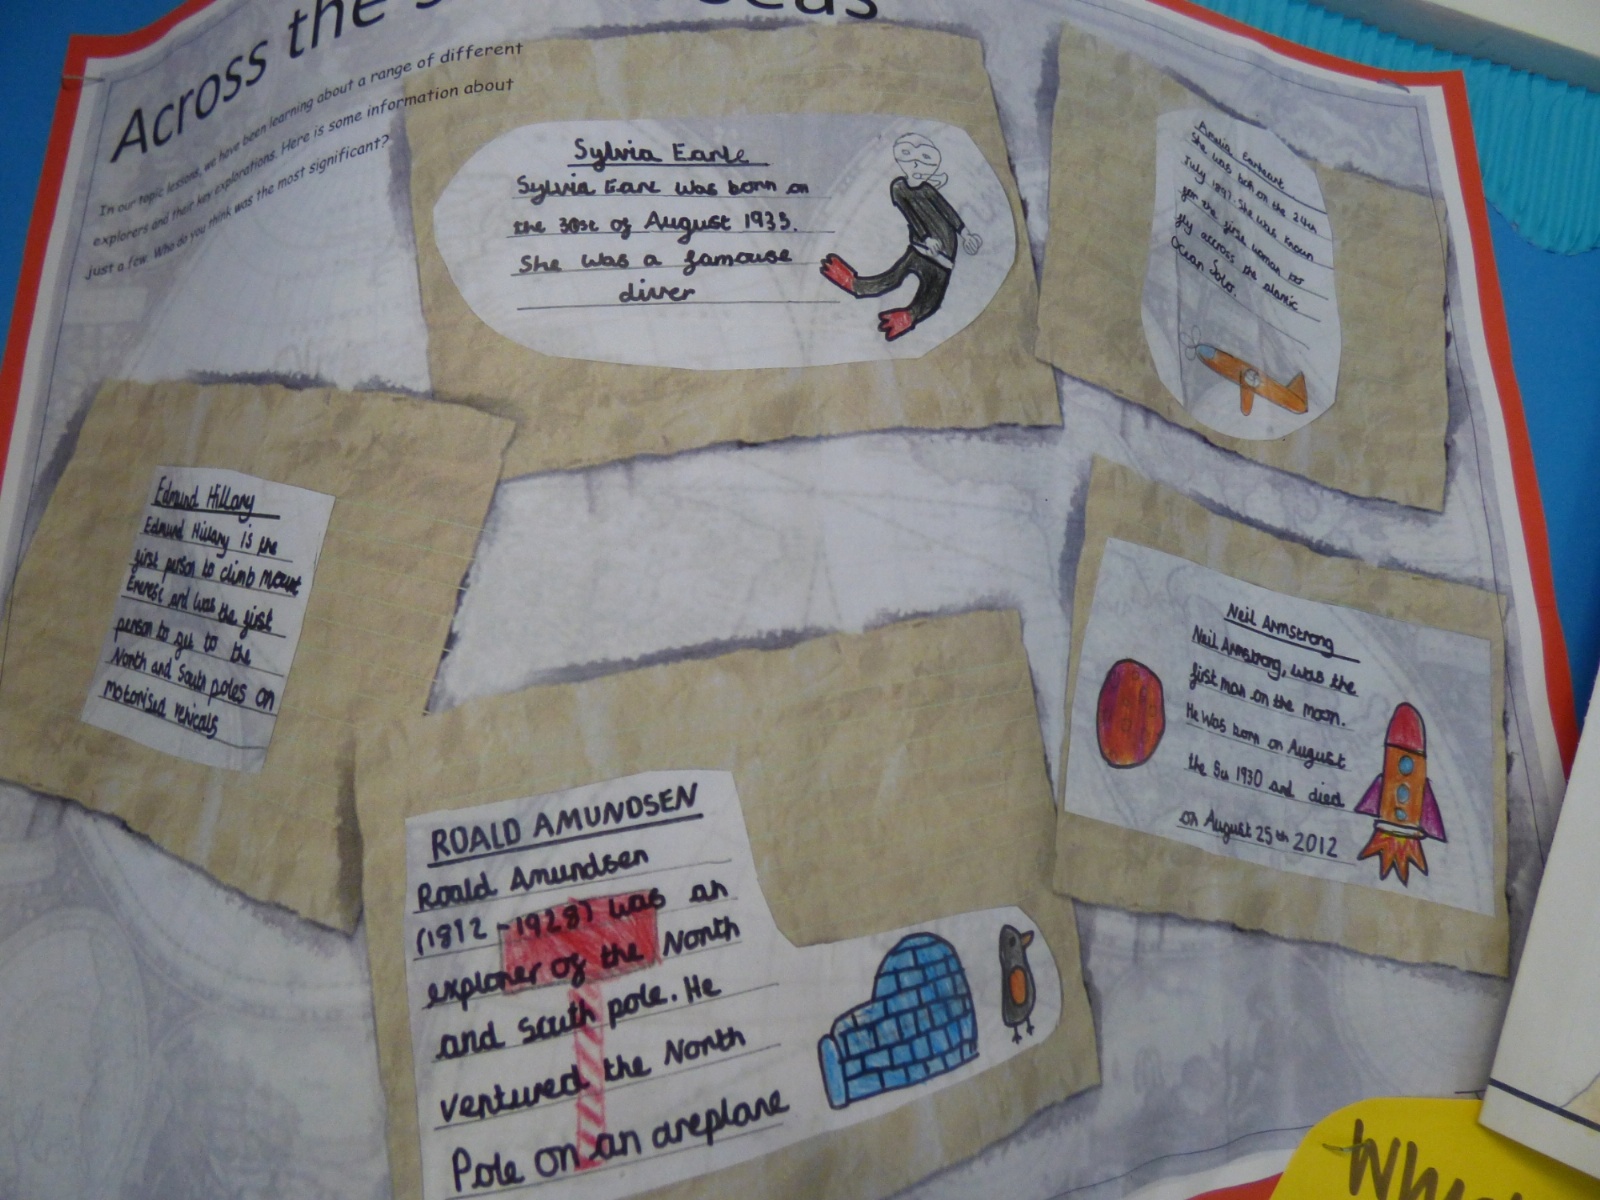 Across the Seas
In our topic lessons, we have been learning about a range of different
explorers and their key explorations. Here is some information about
just a few. Who do you think was the most significant?
Sylvia Earle
Sylvia Earl was born on
the 30st of August 1935.
She was a famouse
diver
Amelia Earheart
She was boh on the 24th
July 1897. She was knoun
for the first woman to
fly accross the atlantic
Ocean Solo.
Edmund Hillary
Edmund Hillary is the
first person to climb mount
Everest and was the first
person to get to the
North and South poles on
motorised vehicals
Neil Armstrong
Neil Armstrong, was the
first man on the moon.
He was born on August
the 5th 1930 and died
on August 25th 2012
ROALD AMUNDSEN
Roald Amundsen
(1872 - 1928) was an
explorer of the North
and South pole. He
ventured the North
Pole on an areplane